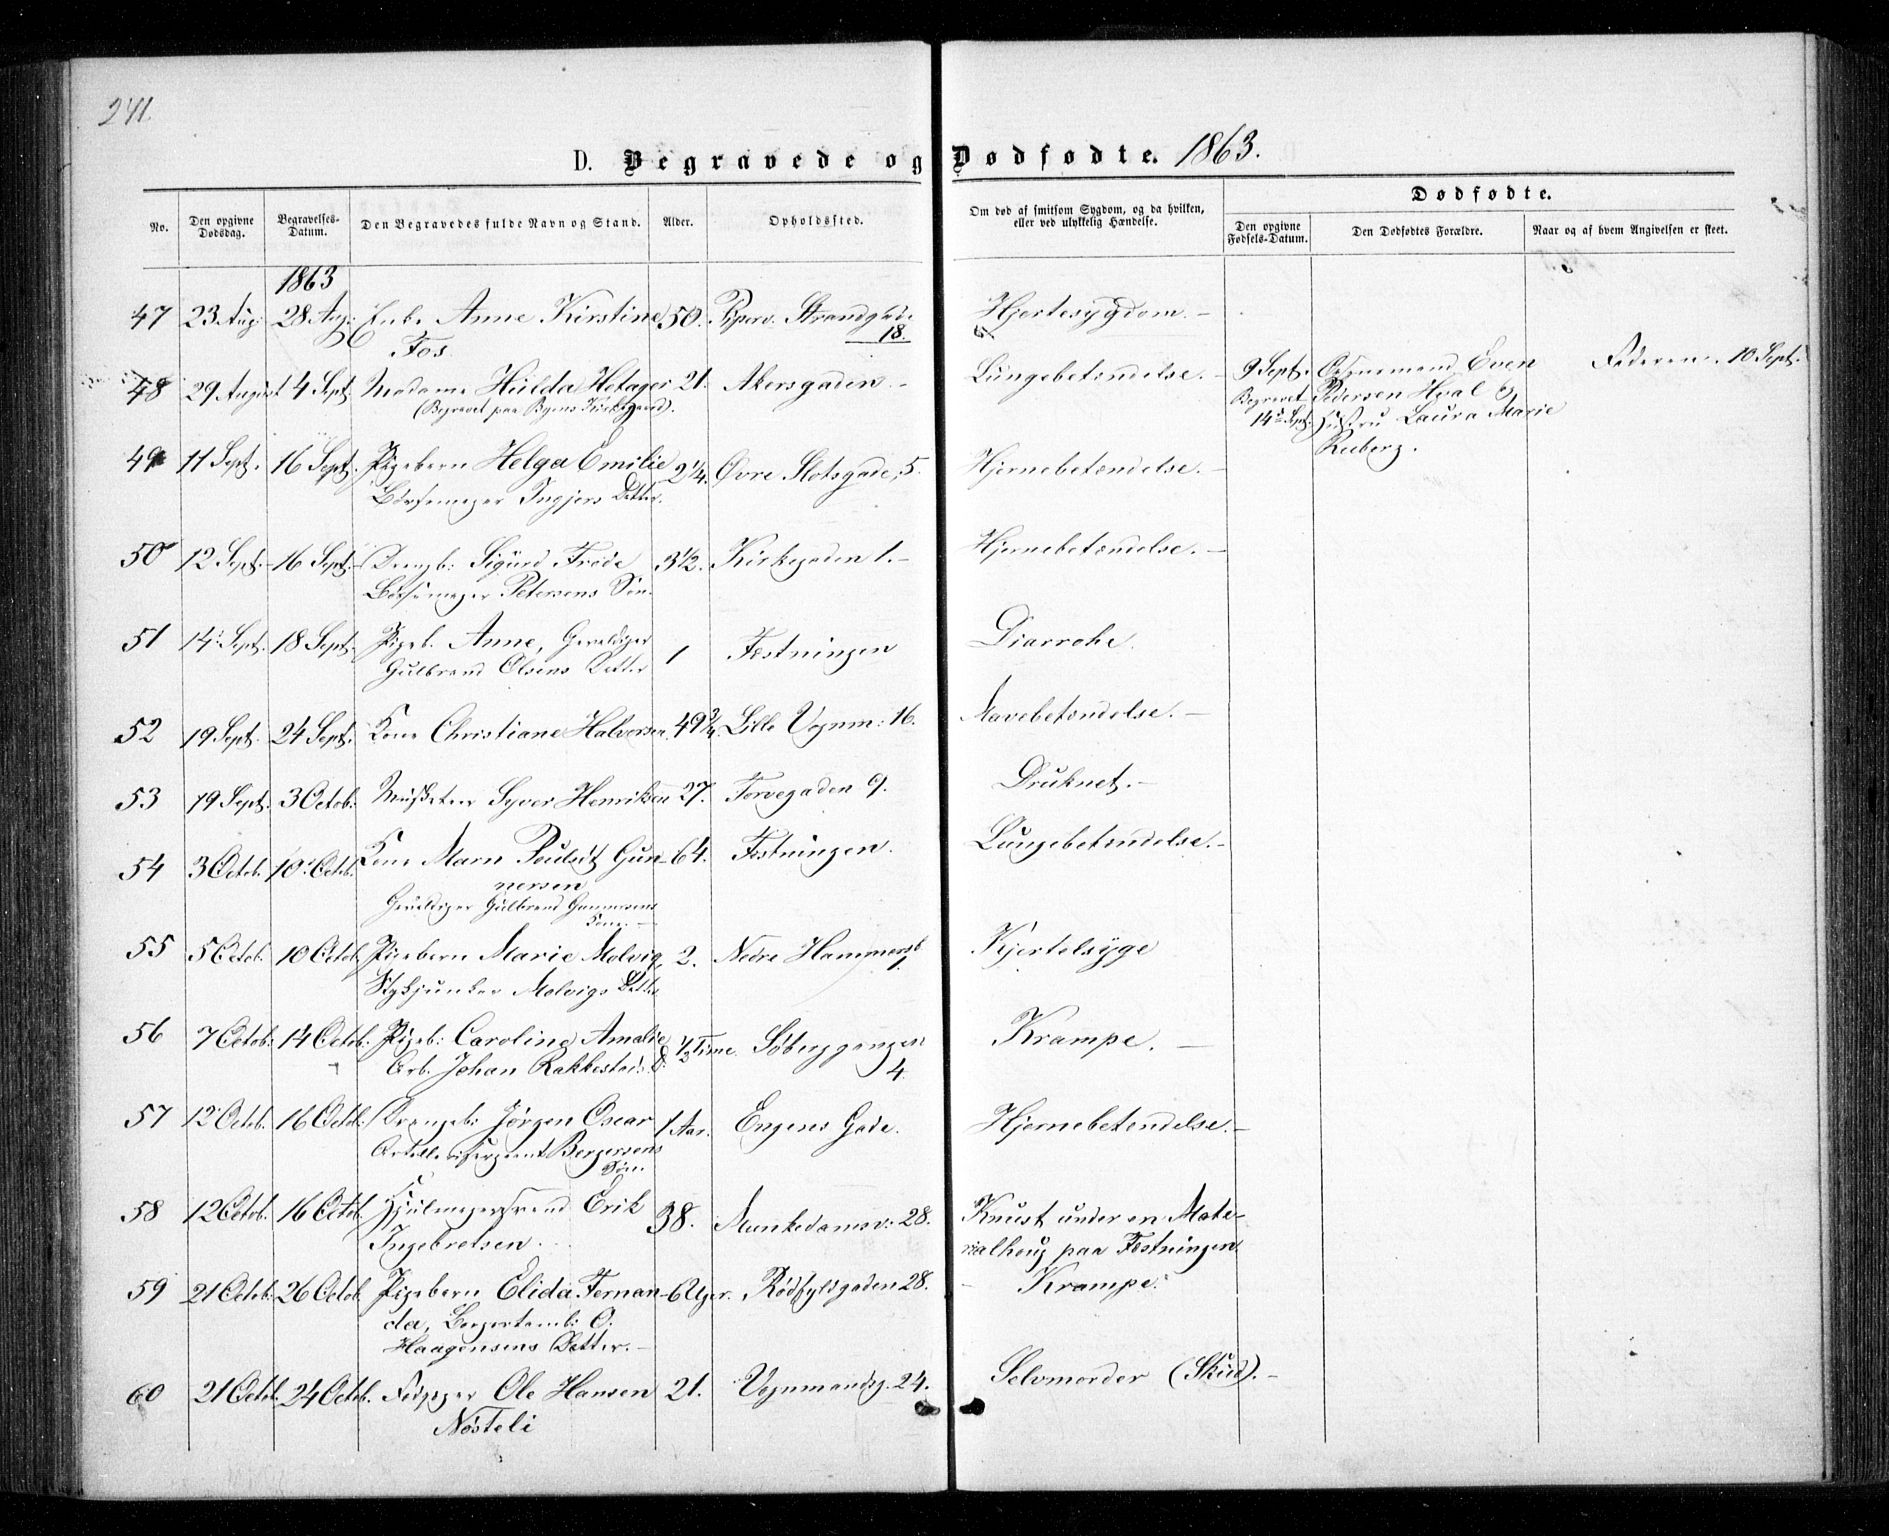 241.
D. Begravede og Dødfødte. 1863.
No.
Den opgivne Dødsdag.
Begravelses-Datum.
Den Begravedes fulde Navn og Stand.
Alder.
Opholdssted.
Om død af smitsom Sygdom, og da hvilken, eller ved ulykkelig Hændelse.
Dødfødte.
Den opgivne Fødsels-Datum.
Den Dødfødtes Forældre.
Naar og af hvem Angivelsen er skeet.
1863
47 23 Aug: 28 Aug: Enke Anne Kirstine 50. Piperv. Strandgade Hjertesygdom.–
Fos. 18.
48 29 August 4 Sept. Madame Hulda Hetager 21. Akersgaden.– Lungebetændelse.– 9 Sept. Even Faderen. 10 Sept.
(Begravet paa Byens Kirkegaard). Begravet Pedersen Hval &
14de Sept. Hustru Laura Marie
Ruberg.
49 11 Sept. 16 Sept. Pigebarn Helga Emilie 2 1/4. Øvre Slotsgade, 5. Hjernebetændelse.–
Børsemager Ingjers Datter.
50 12 Sept.– 16 Sept.– Drengb: Sigurd Frode 3 1/2. Kirkegaden 1.– Hjernebetændelse.–
Børsemager Petersens Søn.
51 14 Sept. 18 Sept. Pigeb. Anne, Gevaldiger 1 Fæstningen Diarrohe.
Gulbrand Olsens Datter
52 19 Sept. 24 Sept. Kone Christiane Halvorsen 49 3/4. Lille Vognm: 16. Mavebetændelse.–
53 19 Sept. 3 Octob: Musketeer Syver Henriksen 27. Torvegaden 9. Druknet.–
54 3 Octob. 10 Octob. Kone Marn Gun- 64. Fæstningen. Lungebetændelse.–
nersen
Gevaldiger Gulbrand Gunnersens
Kone.–
55 5 Octob. 10 Octob. Pigebarn Marie Molvig, 2. Nedre Hammersb Kjertelsyge
Stykjunker Molvigs Datter 1.
56 7 Octob: 14 Octob: Pigeb: Caroline Amalie 1/2 Time. Søberggangen Krampe.–
Arb. Johan Rakkestad: D. 4.
57 12 Octob. 16 Octob: Drengeb: Jørgen Oscar 1 Aar. Engens Gade. Hjernebetændelse.–
Artillerisergeant Bergersens
Søn.
58 12 Octob. 16 Octob. Hjulmagersvend Erik 38. Munkedamsv: 28. Knust under en Mate-
Ingebretsen. rialhoug paa Fæstningen.
59 21 Octob: 26 Octob. Pigebarn Elida Fernan- 6 Uger. Rødfyldgaden 28. – Krampe.
da, O.
Haagensens Datter.–
60 21 Octob. 24 Octob. Ole Hansen 21. Vognmandsg. 24. Selvmorder (Skud).–
Nøsteli